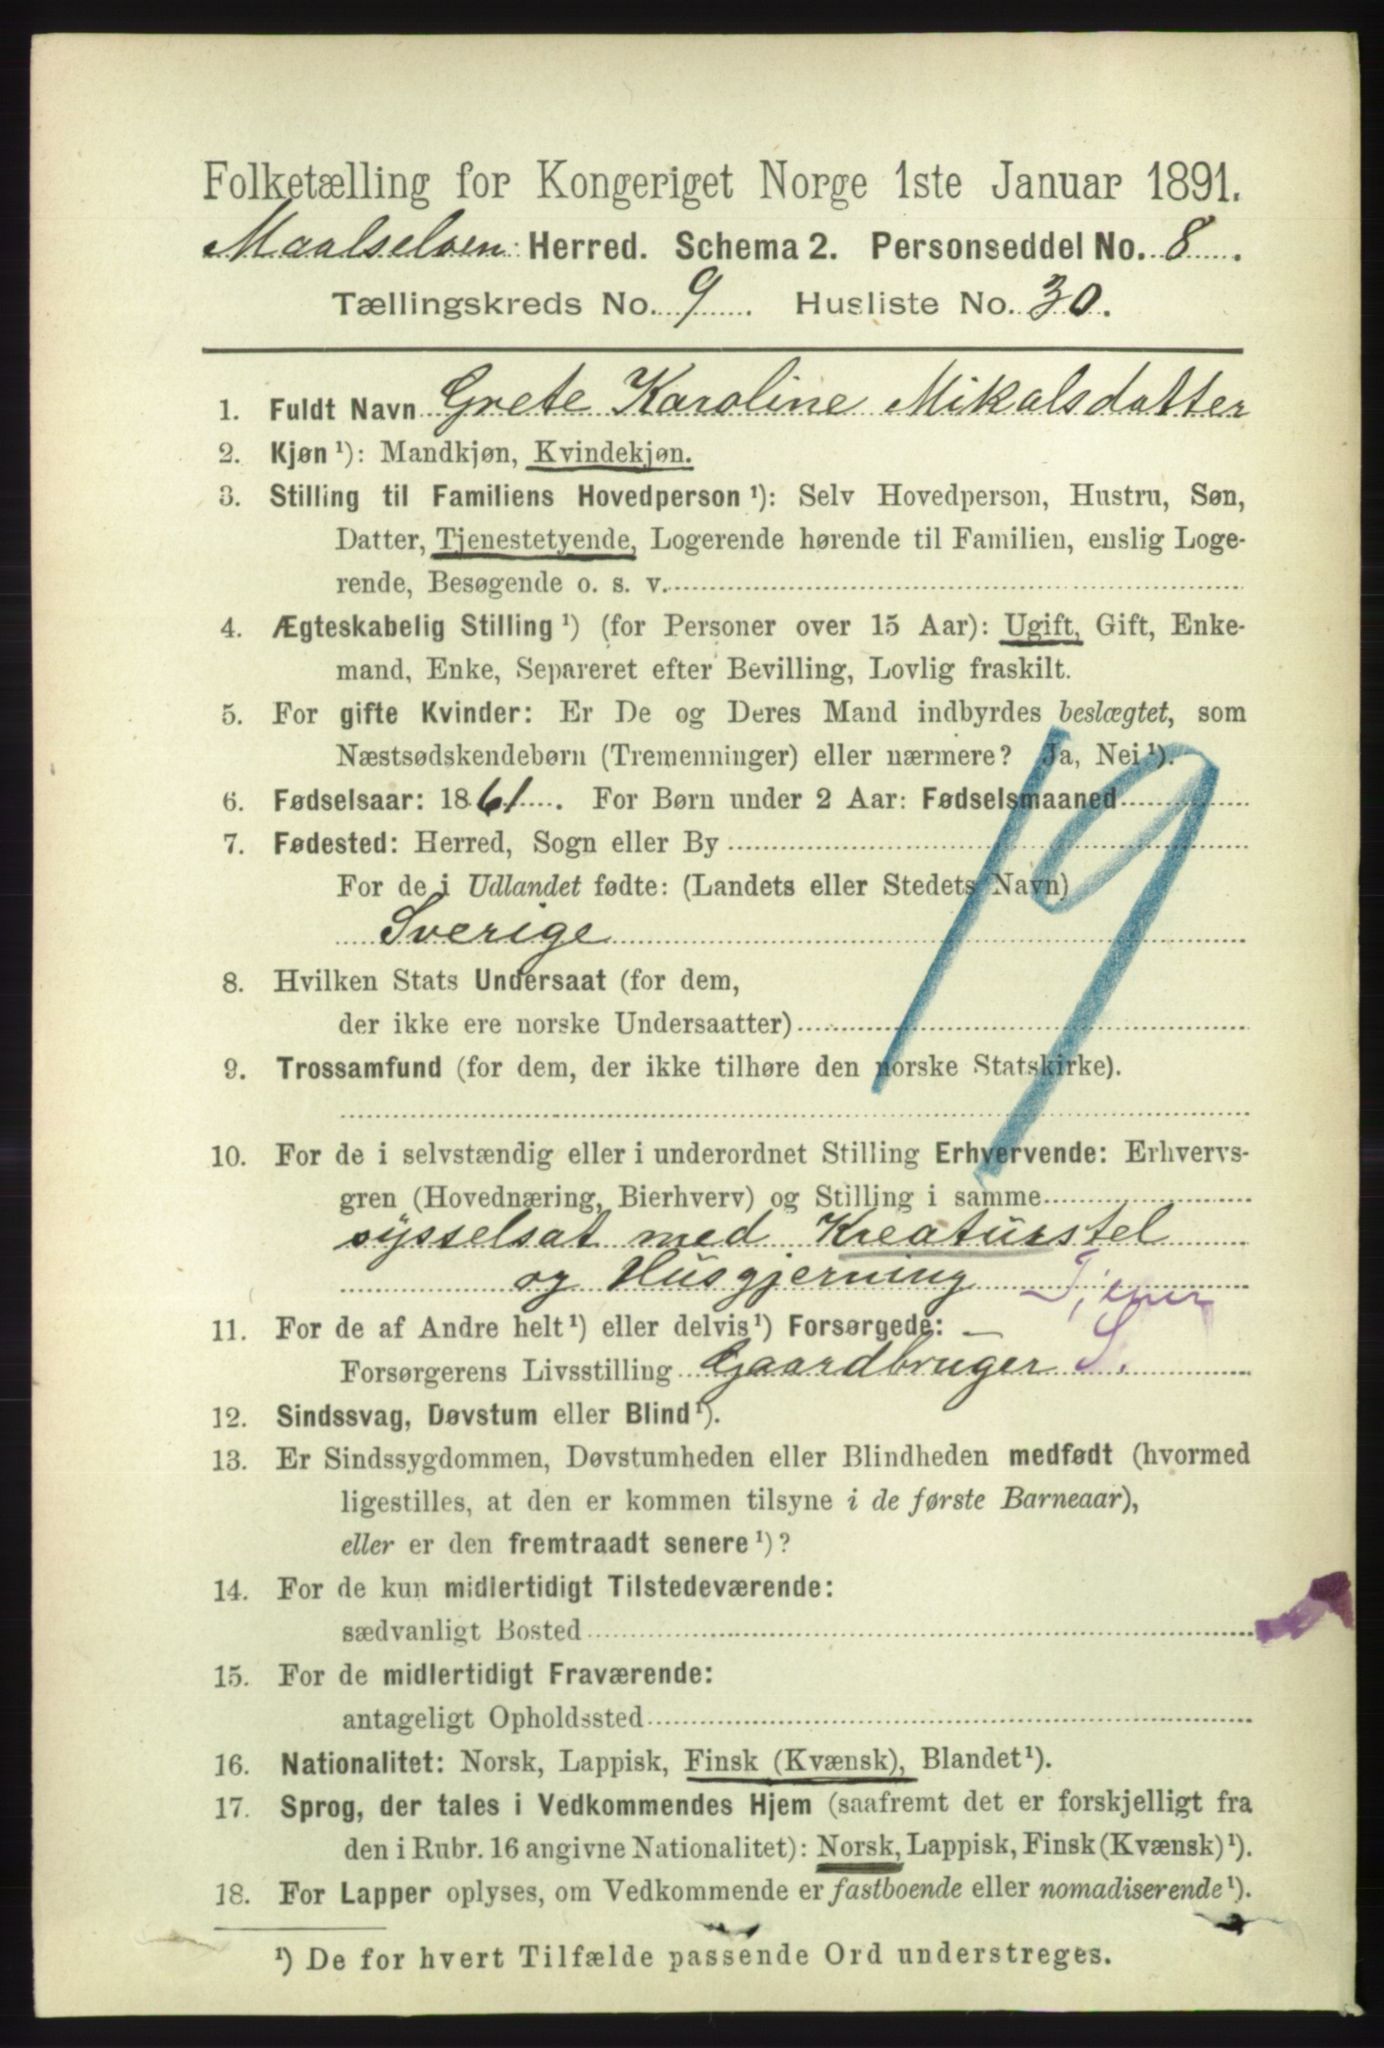 Folketælling for Kongeriget Norge 1ste Januar 1891.
Maalselven Herred. Schema 2. Personseddel No. 8.
Tællingskreds No. 9. Husliste No. 30.
1. Fuldt Navn Grete Karoline Mikalsdatter
2. Kjøn ¹): Mandkjøn, Kvindekjøn.
3. Stilling til Familiens Hovedperson ¹): Selv Hovedperson, Hustru, Søn,
Datter, Tjenestetyende, Logerende hørende til Familien, enslig Loge-
rende, Besøgende o. s. v.
4. Ægteskabelig Stilling ¹) (for Personer over 15 Aar): Ugift, Gift, Enke-
mand, Enke, Separeret efter Bevilling, Lovlig fraskilt.
5. For gifte Kvinder: Er De og Deres Mand indbyrdes beslægtet, som
Næstsødskendebørn (Tremenninger) eller nærmere? Ja, Nei ¹).
6. Fødselsaar: 1861. For Børn under 2 Aar: Fødselsmaaned
7. Fødested: Herred, Sogn eller By
For de i Udlandet fødte: (Landets eller Stedets Navn)
Sverige
19
8. Hvilken Stats Undersaat (for dem,
der ikke ere norske Undersaatter)
9. Trossamfund (for dem, der ikke tilhøre den norske Statskirke).
10. For de i selvstændig eller i underordnet Stilling Erhvervende: Erhvervs-
gren (Hovednæring, Bierhverv) og Stilling i samme
sysselsat med Kreaturstel
og Husgjerning Tjener
11. For de af Andre helt ¹) eller delvis ¹) Forsørgede: —
Forsørgerens Livsstilling Gaardbruger S.
12. Sindssvag, Døvstum eller Blind ¹).
13. Er Sindssygdommen, Døvstumheden eller Blindheden medfødt (hvormed
ligestilles, at den er kommen tilsyne i de første Barneaar),
eller er den fremtraadt senere ¹)?
14. For de kun midlertidigt Tilstedeværende:
sædvanligt Bosted
15. For de midlertidigt Fraværende:
antageligt Opholdssted
16. Nationalitet: Norsk, Lappisk, Finsk (Kvænsk), Blandet ¹).
17. Sprog, der tales i Vedkommendes Hjem (saafremt det er forskjelligt fra
den i Rubr. 16 angivne Nationalitet): Norsk, Lappisk, Finsk (Kvænsk) ¹).
18. For Lapper oplyses, om Vedkommende er fastboende eller nomadiserende ¹).
¹) De for hvert Tilfælde passende Ord understreges.